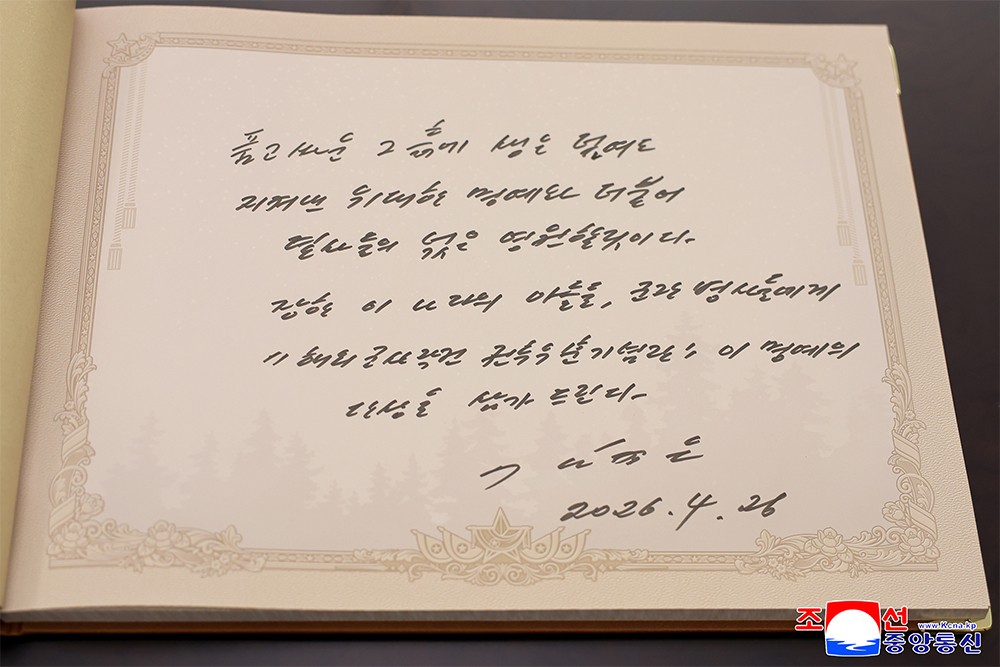 품고싸운 그 흙에 생은 덮여도
지켜낸 위대한 명예와 더불어
렬사들의 넋은 영원할것이다.
장한 이 나라의 아들들, 군관, 병사들에게
《해외군사작전 전투위훈기념관》 이 명예의
단상을 삼가 드린다.
김정은
2026.4.26
조선
www.kcna.kp
중앙통신